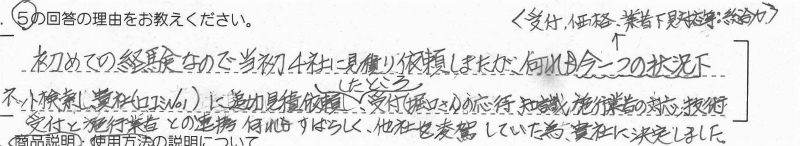 ⑤の回答の理由をお教えください。
〈受付、価格、業者下見対応等:総合力〉
初めての経験なので当初4社に見積り依頼しましたが、何れも今一つの状況下
ネット検索し貴社(口コミNo.1)に追加見積依頼したところ受付 さんの応待、知識、施行業者の対応、技術
受付と施行業者との連携 何れもすばらしく、他社を凌駕していた為、貴社に決定しました。
〈商品説明・使用方法の説明について